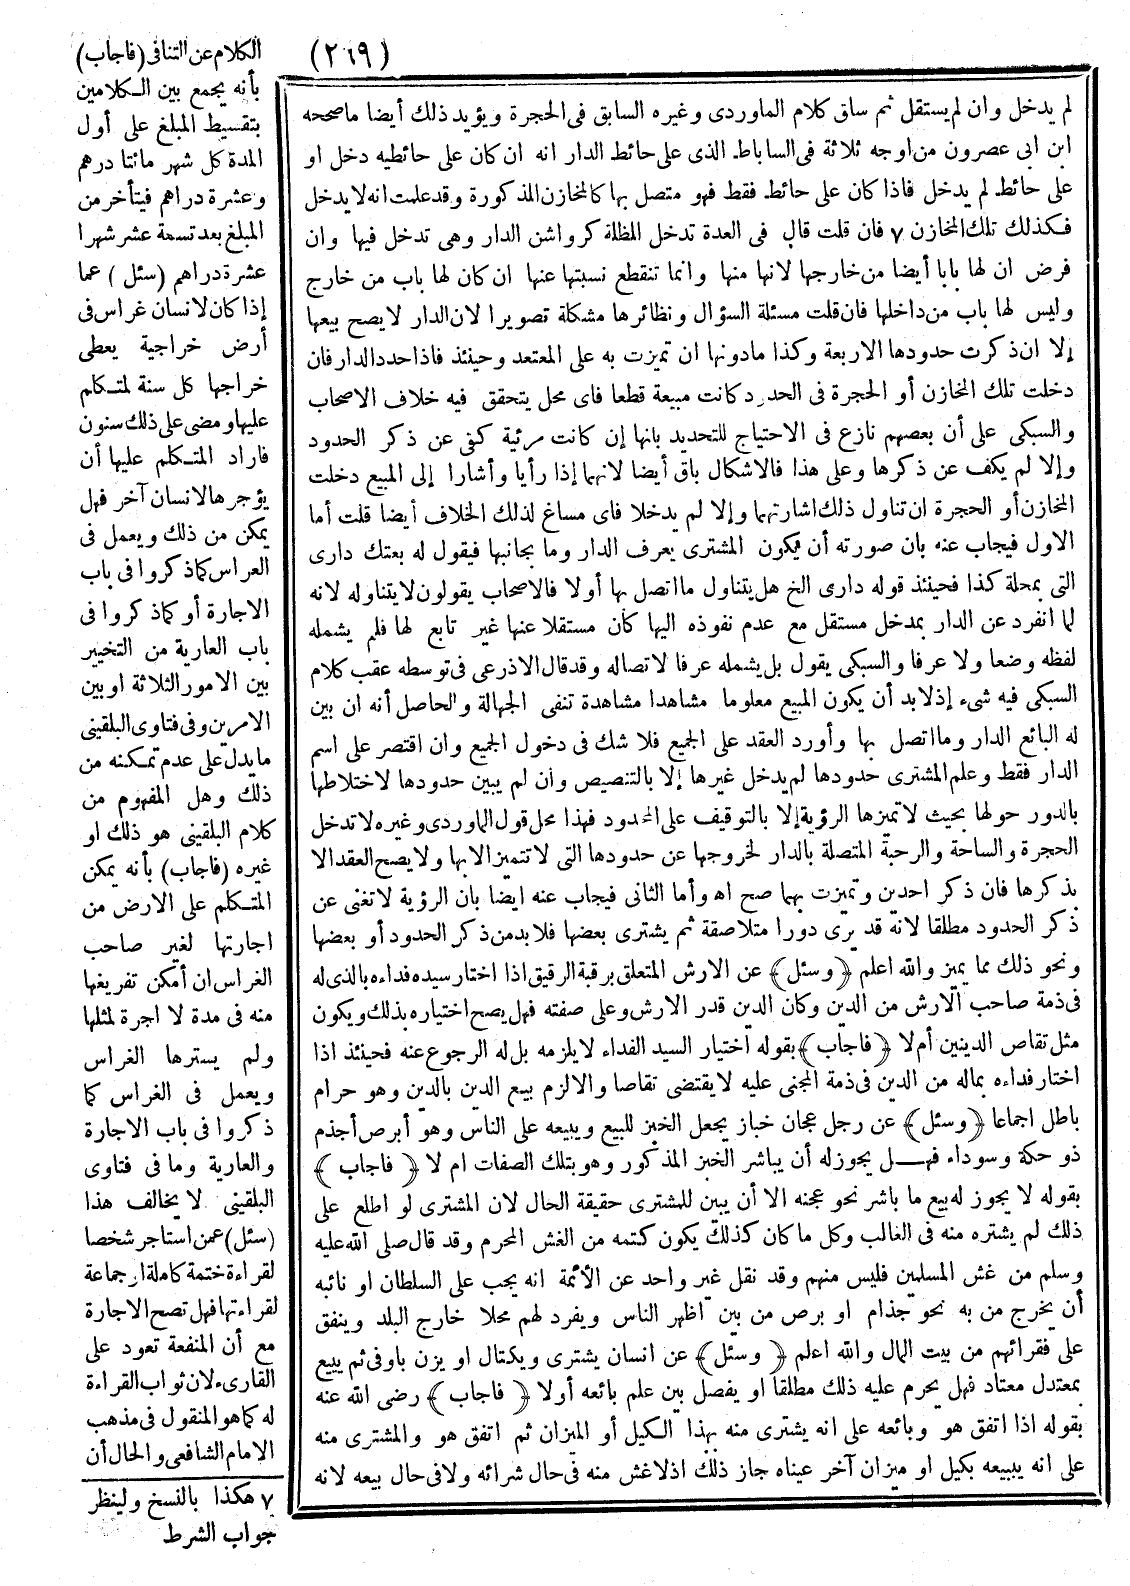 (٢٦٩)
لم يدخل وان لم يستقل ثم ساق كلام الماوردى وغيره السابق فى الحجرة ويؤيد ذلك أيضا ماصححه
ابن ابى عصرون من اوجه ثلاثة فى الساباط الذى على حائط الدار انه ان كان على حائطيه دخل او
على حائط لم يدخل فاذا كان على حائط فقط فهو متصل بها كالمخازن المذكورة وقد علمت انه لا يدخل
فكذلك تلك المخازن ٧ فان قلت قال فى العدة تدخل المظلة كرواشن الدار وهى تدخل فيها وان
فرض ان لها بابا أيضا من خارجها لانها منها وانما تنقطع نسبتها عنها ان كان لها باب من خارج
وليس لها باب من داخلها فان قلت مسئلة السؤال ونظائرها مشكلة تصويرا لان الدار لا يصح بيعها
إلا ان ذكرت حدودها الاربعة وكذا مادونها ان تميزت به على المعتمد وحينئذ فاذا حدد الدار فان
دخلت تلك المخازن أو الحجرة فى الحدود كانت مبيعة قطعا فاى محل يتحقق فيه خلاف الاصحاب
والسبكى على أن بعضهم نازع فى الاحتياج للتحديد بانها إن كانت مرئية كفى عن ذكر الحدود
وإلا لم يكف عن ذكرها وعلى هذا فالاشكال باق أيضا لانهما إذا رأيا وأشارا إلى المبيع دخلت
المخازن أو الحجرة ان تناول ذلك اشارتهما وإلا لم يدخلا فاى مساغ لذلك الخلاف أيضا قلت أما
الاول فيجاب عنه بان صورته أن يكون المشترى يعرف الدار وما بجانبها فيقول له بعتك دارى
التى بمحلة كذا فحينئذ قوله دارى الخ هل يتناول ما اتصل بها أولا فالاصحاب يقولون لا يتناوله لانه
لما انفرد عن الدار بمدخل مستقل مع عدم نفوذه اليها كان مستقلا عنها غير تابع لها فلم يشمله
لفظه وضعا ولا عرفا والسبكى يقول بل يشمله عرفا لاتصاله وقد قال الاذرعى فى توسطه عقب كلام
السبكى فيه شىء إذ لابد أن يكون المبيع معلوما مشاهدا مشاهدة تنفى الجهالة والحاصل أنه ان بين
له البائع الدار وما اتصل بها وأورد العقد على الجميع فلا شك فى دخول الجميع وان اقتصر على اسم
الدار فقط وعلم المشترى حدودها لم يدخل غيرها إلا بالتنصيص وان لم يبين حدودها لاختلاطها
بالدور حولها بحيث لا تميزها الرؤية إلا بالتوقيف على الحدود فهذا محل قول الماوردى وغيره لا تدخل
الحجرة والساحة والرحبة المتصلة بالدار لخروجها عن حدودها التى لا تتميز الا بها ولا يصح العقد الا
بذكرها فان ذكر احدين وتميزت بهما صح اه وأما الثانى فيجاب عنه ايضا بان الرؤية لا تغنى عن
ذكر الحدود مطلقا لانه قد يرى دورا متلاصقة ثم يشترى بعضها فلابد من ذكر الحدود أو بعضها
ونحو ذلك مما يميز والله اعلم ﴿وسئل﴾ عن الارش المتعلق برقبة الرقيق اذا اختار سيده فداءه بالذى له
فى ذمة صاحب الارش من الدين وكان الدين قدر الارش وعلى صفته فهل يصح اختياره بذلك ويكون
مثل تقاص الدينين أم لا ﴿فاجاب﴾ بقوله اختيار السيد الفداء لا يلزمه بل له الرجوع عنه فحينئذ اذا
اختار فداءه بماله من الدين فى ذمة المجنى عليه لا يقتضى تقاصا والا لزم بيع الدين بالدين وهو حرام
باطل اجماعا ﴿وسئل﴾ عن رجل عجان خباز يجعل الخبز للبيع ويبيعه على الناس وهو أبرص أجذم
ذو حكة وسوداء فهل يجوز له أن يباشر الخبز المذكور وهو بتلك الصفات ام لا ﴿فاجاب﴾
بقوله لا يجوز له بيع ما باشر نحو عجنه الا أن يبين للمشترى حقيقة الحال لان المشترى لو اطلع على
ذلك لم يشتره منه فى الغالب وكل ما كان كذلك يكون كتمه من الغش المحرم وقد قال صلى الله عليه
وسلم من غش المسلمين فليس منهم وقد نقل غير واحد عن الأئمة انه يجب على السلطان او نائبه
أن يخرج من به نحو جذام او برص من بين اظهر الناس ويفرد لهم محلا خارج البلد وينفق
على فقرائهم من بيت المال والله اعلم ﴿وسئل﴾ عن انسان يشترى ويكتال او يزن باوفى ثم يبيع
بمعتدل معتاد فهل يحرم عليه ذلك مطلقا او يفصل بين علم بائعه أولا ﴿فاجاب﴾ رضى الله عنه
بقوله اذا اتفق هو وبائعه على انه يشترى منه بهذا الكيل أو الميزان ثم اتفق هو والمشترى منه
على انه يبيعه بكيل او ميزان آخر عيناه جاز ذلك اذ لاغش منه فى حال شرائه ولا فى حال بيعه لانه
الكلام عن التنافى (فاجاب)
بأنه يجمع بين الكلامين
بتقسيط المبلغ على أول
المدة كل شهر مائتا درهم
وعشرة دراهم فيتأخر من
المبلغ بعد تسعة عشر شهرا
عشرة دراهم (سئل) عما
إذا كان لانسان غراس فى
أرض خراجية يعطى
خراجها كل سنة لمتكلم
عليها ومضى على ذلك سنون
فاراد المتكلم عليها أن
يؤجرها لانسان آخر فهل
يمكن من ذلك ويعمل فى
الغراس كما ذكروا فى باب
الاجارة أو كما ذكروا فى
باب العارية من التخيير
بين الامور الثلاثة او بين
الامرين وفى فتاوى البلقينى
ما يدل على عدم تمكنه من
ذلك وهل المفهوم من
كلام البلقينى هو ذلك او
غيره (فاجاب) بأنه يمكن
المتكلم على الارض من
اجارتها لغير صاحب
الغراس ان أمكن تفريغها
منه فى مدة لا اجرة لمثلها
ولم يسترها الغراس
ويعمل فى الغراس كما
ذكروا فى باب الاجارة
والعارية وما فى فتاوى
البلقينى لا يخالف هذا
(سئل) عمن استاجر شخصا
لقراءة ختمة كاملة او جماعة
لقراءتها فهل تصح الاجارة
مع أن المنفعة تعود على
القارىء لان ثواب القراءة
له كما هو المنقول فى مذهب
الامام الشافعى والحال أن
٧ هكذا بالنسخ ولينظر
جواب الشرط